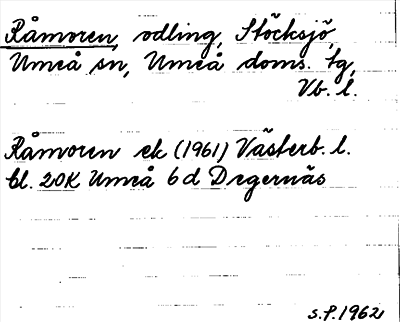 Råmoren, odling, Stöcksjö,
Umeå sn, Umeå doms. tg,
Vb. l.
Råmoren ek (1961) Västerb. l.
bl. 20K Umeå 6 d Degernäs
S.P. 1962